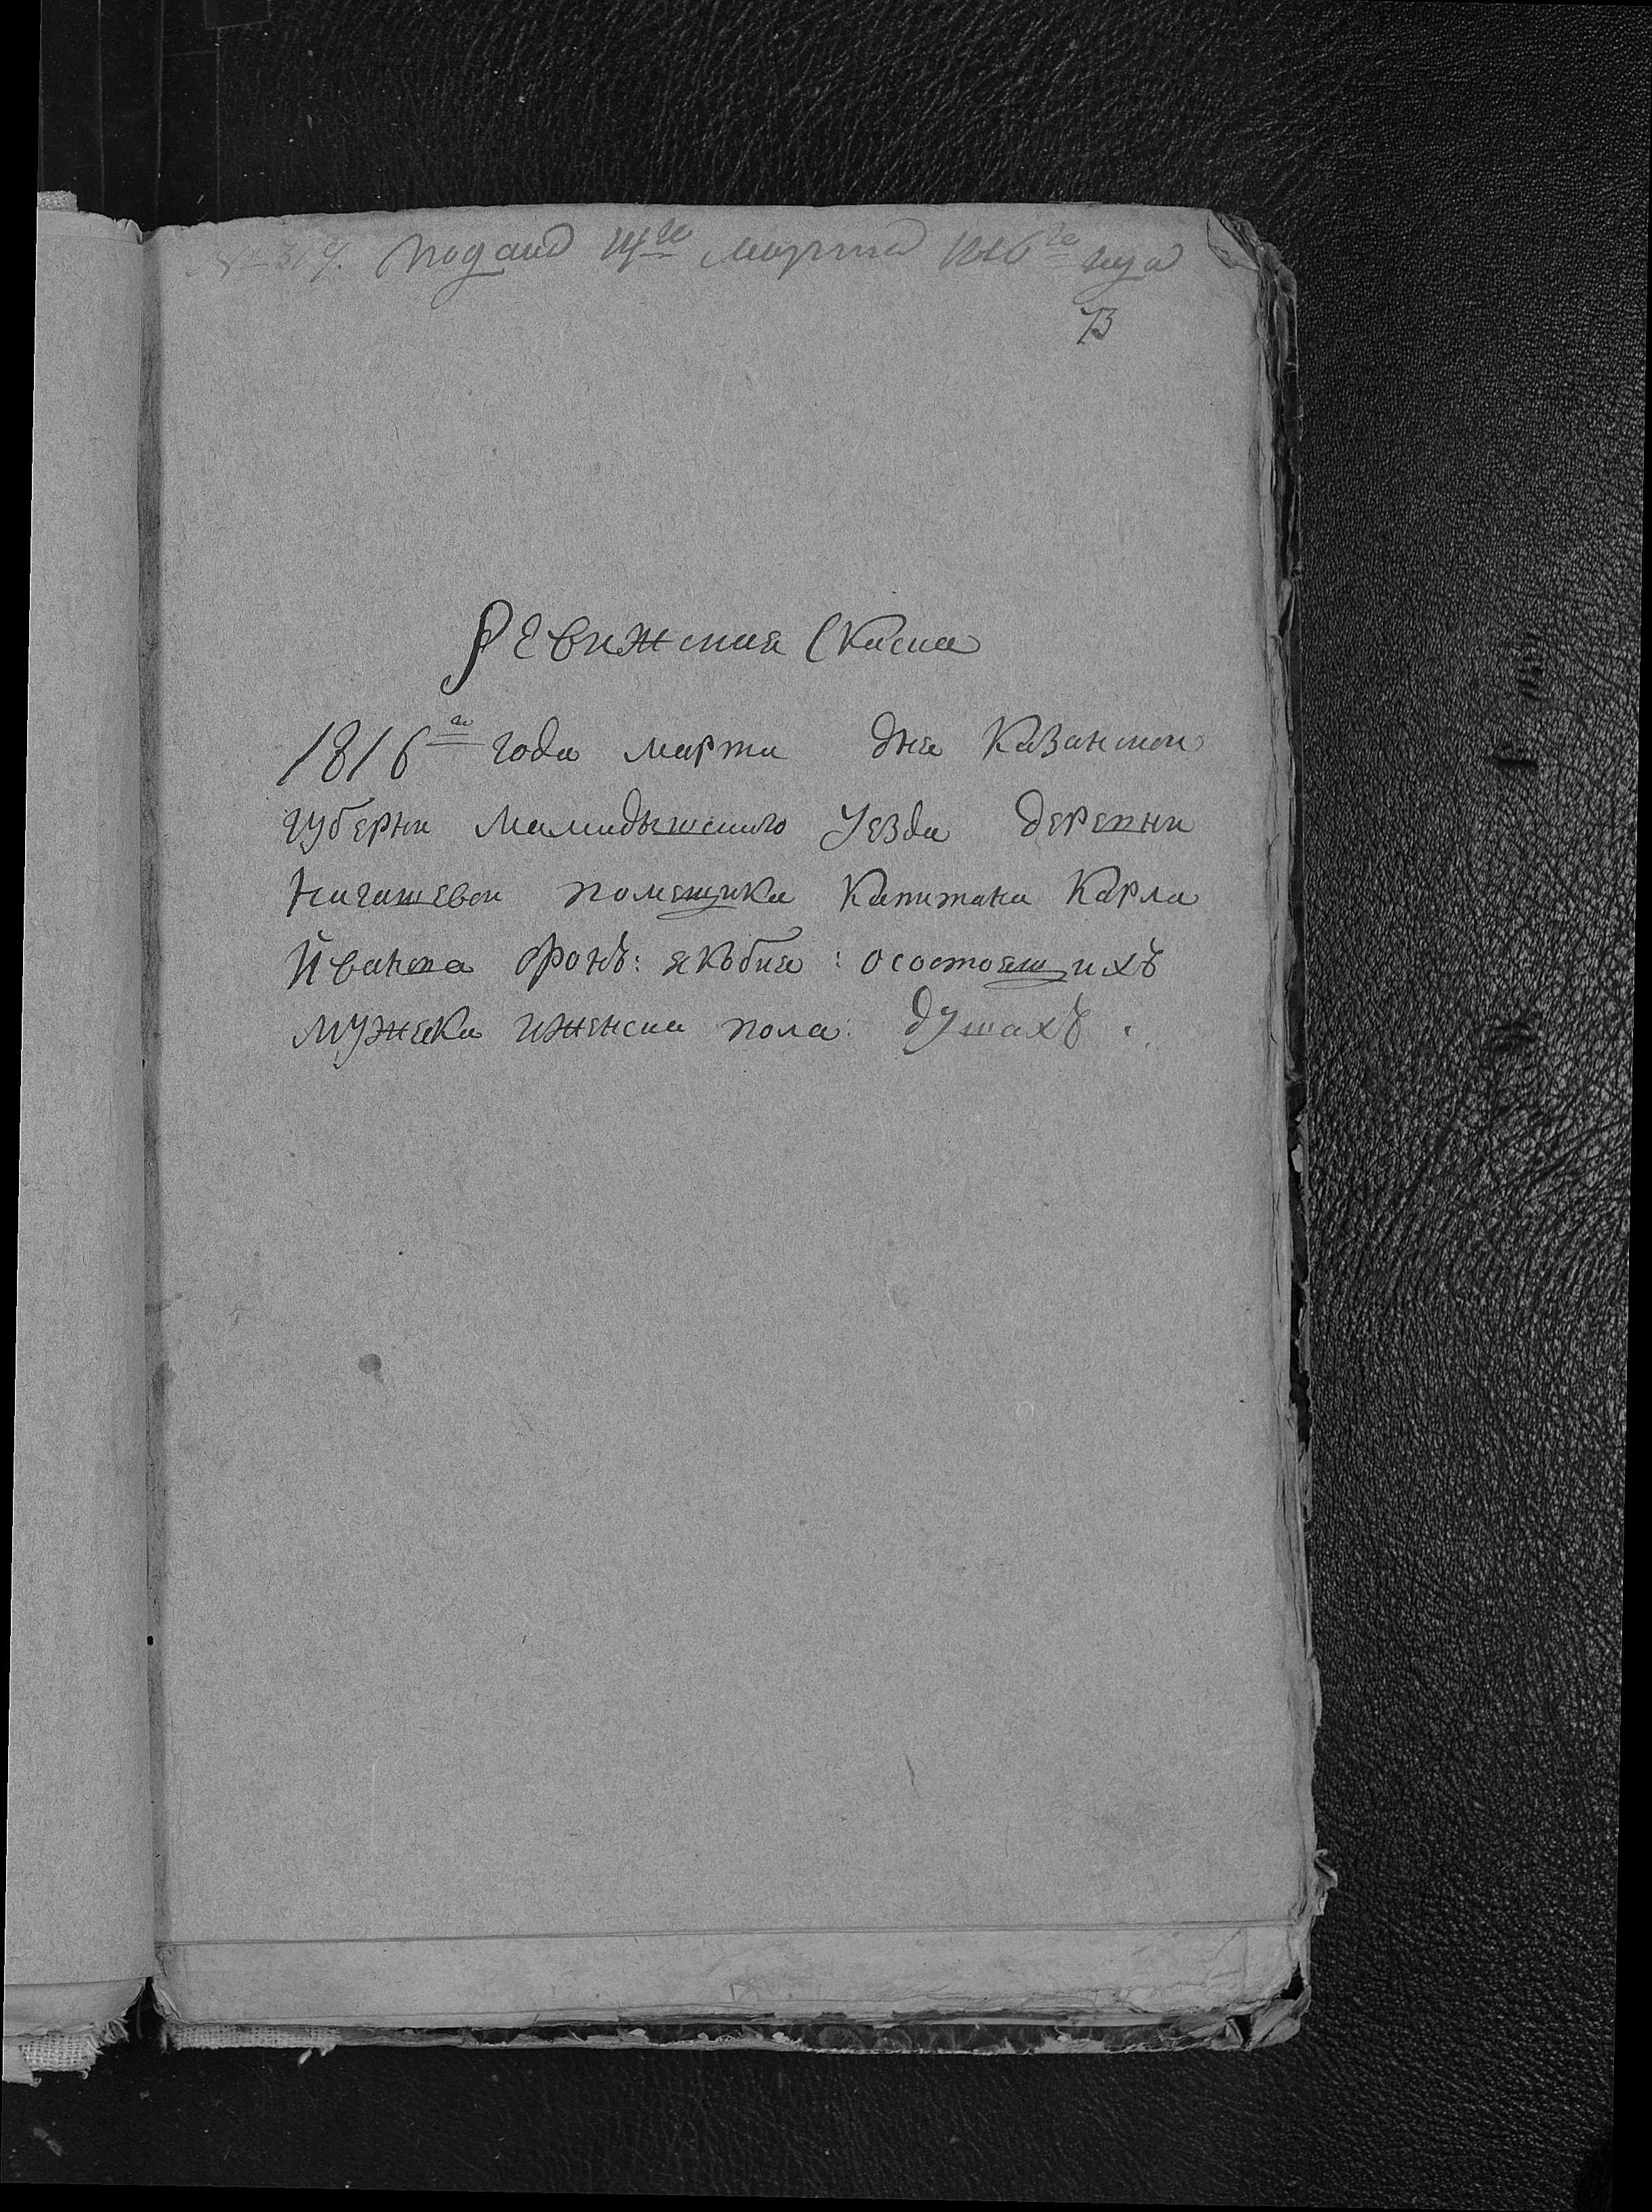 № 319. Подана 14го марта 1816го года
73
Ревижская Скаска
1816го года марта дня Казанской
губерни Мамадышского уезда деревни
Нагашевой помещика Капитана Карла
Иванова Фонъ: якъбия: о состоящихъ
мужска и женска пола: душахъ.